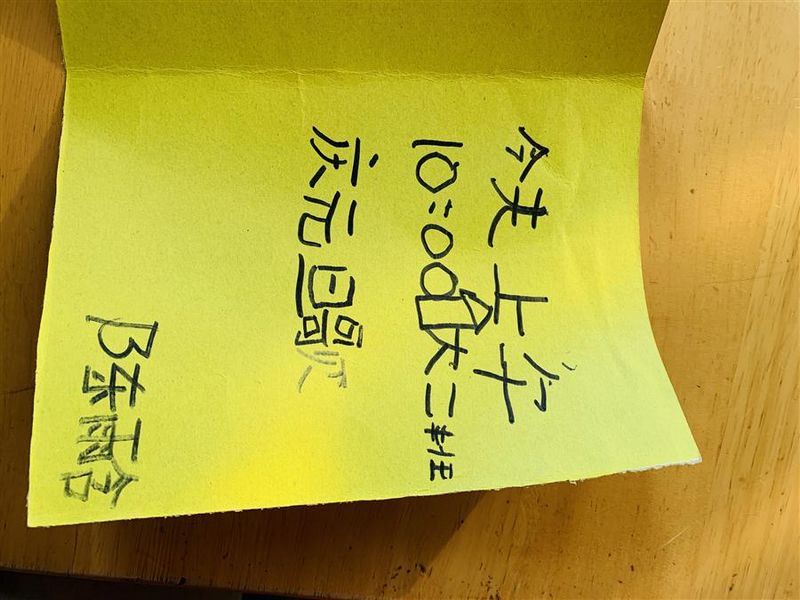 今天上午
10:00大二班
庆元旦歌
陈雨含